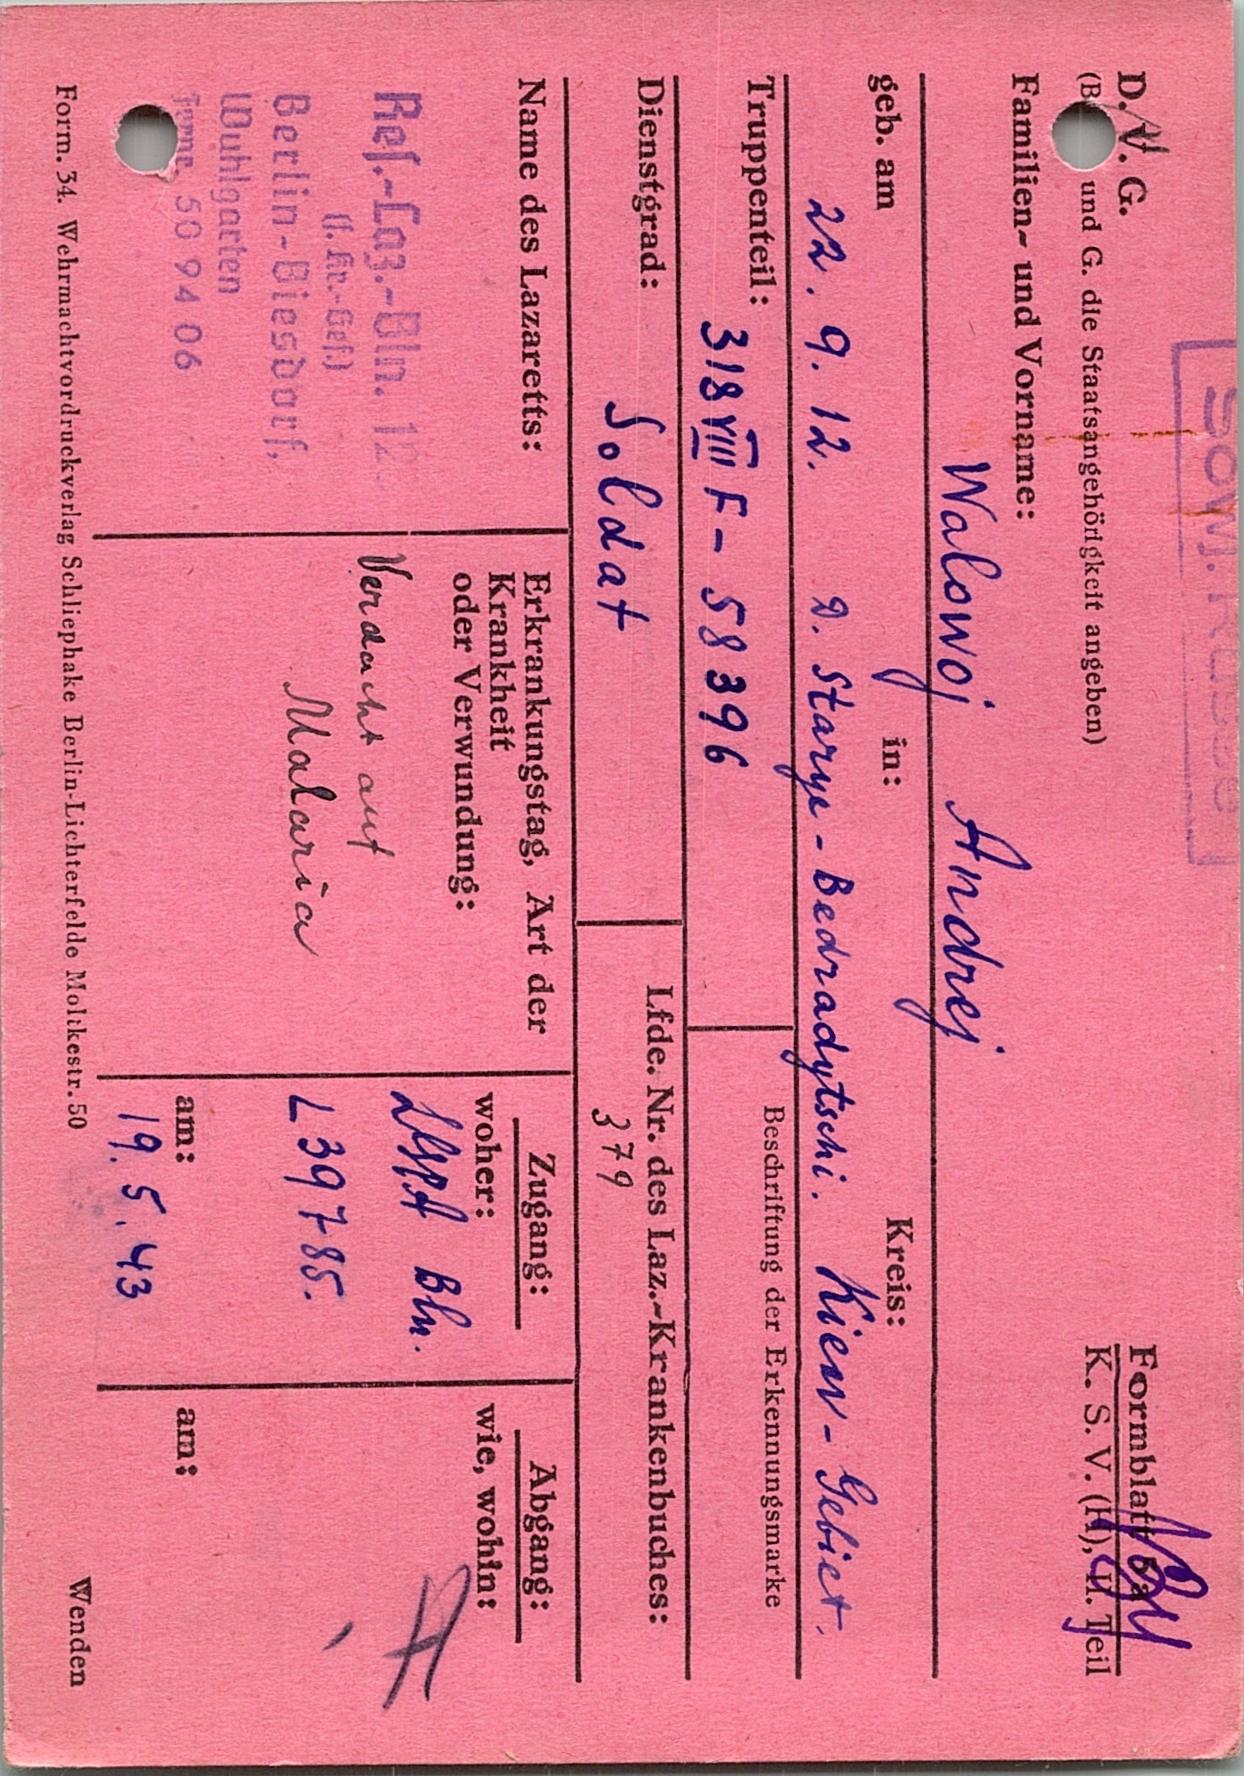 Sowj. Russe
D. V. G.
Formblatt
(B und G. die Staatsangehörigkeit angeben)
K. S. V. (H), II. Teil
Familien- und Vorname:
Walowoj Andrej
geb. am in: Kreis:
22. 9. 12. D. Starye-Bedradytschi. Kiew-Gebiet.
Truppenteil: Beschriftung der Erkennungsmarke
318 VIII F - 58396
Dienstgrad: Lfde. Nr. des Laz.-Krankenbuches:
Soldat 379
Name des Lazaretts:
Ref.-Laz.-Bln. 12
(f. Kr.-Gef.)
Berlin-Biesdorf,
Wuhlgarten
50 94 06
Erkrankungstag, Art der
Krankheit
oder Verwundung:
Verdacht auf
Malaria
Zugang:
woher:
Bln.
L 39785.
am:
19. 5. 43
Abgang:
wie, wohin:
am:
Form. 34. Wehrmachtvordruckverlag Schliephake Berlin-Lichterfelde Moltkestr. 50
Wenden